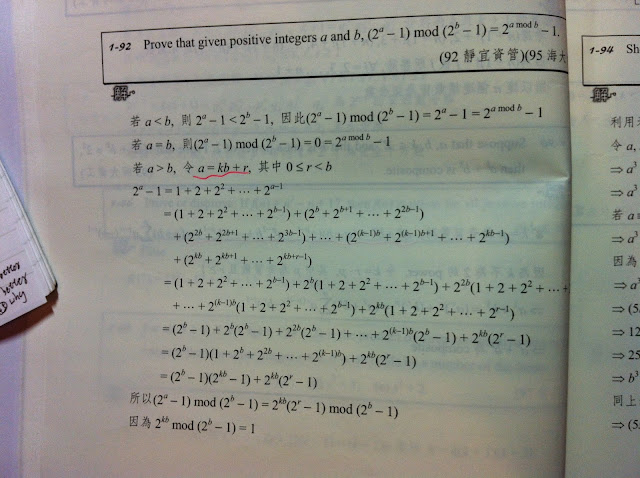 1-92 Prove that given positive integers a and b, (2^a − 1) mod (2^b − 1) = 2^{a mod b} − 1.
(92 靜宜資管)(95 海大
解
若 a < b, 則 2^a − 1 < 2^b − 1, 因此(2^a − 1) mod (2^b − 1) = 2^a − 1 = 2^{a mod b} − 1
若 a = b, 則(2^a − 1) mod (2^b − 1) = 0 = 2^{a mod b} − 1
若 a > b, 令 a = kb + r, 其中 0 ≤ r < b
2^a − 1 = 1 + 2 + 2^2 + … + 2^{a−1}
= (1 + 2 + 2^2 + … + 2^{b−1}) + (2^b + 2^{b+1} + … + 2^{2b−1})
+ (2^{2b} + 2^{2b+1} + … + 2^{3b−1}) + … + (2^{(k−1)b} + 2^{(k−1)b+1} + … + 2^{kb−1})
+ (2^{kb} + 2^{kb+1} + … + 2^{kb+r−1})
= (1 + 2 + 2^2 + … + 2^{b−1}) + 2^b(1 + 2 + 2^2 + … + 2^{b−1}) + 2^{2b}(1 + 2 + 2^2 + … +
+ … + 2^{(k−1)b}(1 + 2 + 2^2 + … + 2^{b−1}) + 2^{kb}(1 + 2 + 2^2 + … + 2^{r−1})
= (2^b − 1) + 2^b(2^b − 1) + 2^{2b}(2^b − 1) + … + 2^{(k−1)b}(2^b − 1) + 2^{kb}(2^r − 1)
= (2^b − 1)(1 + 2^b + 2^{2b} + … + 2^{(k−1)b}) + 2^{kb}(2^r − 1)
= (2^b − 1)(2^{kb} − 1) + 2^{kb}(2^r − 1)
所以(2^a − 1) mod (2^b − 1) = 2^{kb}(2^r − 1) mod (2^b − 1)
因為 2^{kb} mod (2^b − 1) = 1
1-94 Sh
利用
令 a,
⇒ a^3
⇒ a^3
若 a
⇒ a^3
因為
⇒ a^3
⇒ (5
⇒ 12
⇒ 25
⇒ b^3
同上
⇒ (5
better
why